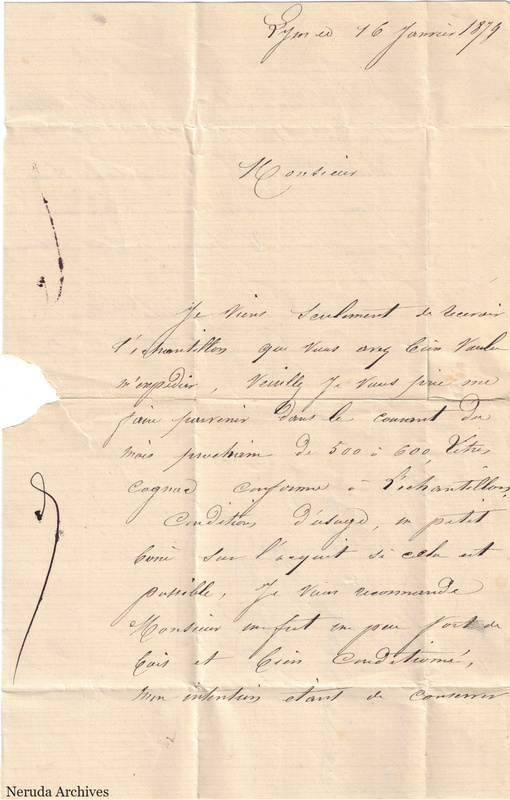 16 Janvier 1879
Monsieur
Je viens seulement de recevoir
l'échantillon que vous avez bien voulu
m'expédier, Veuillez Je vous prie me
faire parvenir dans le courant du
mois prochain de 500 à 600 litres
cognac conforme à l'échantillon,
Conditions d'usage, un petit
boni sur l'acquit si cela est
possible, Je vous recommande
Monsieur un fut un peu fort de
bois et bien Conditionné,
mon intention étant de conserver
Neruda Archives